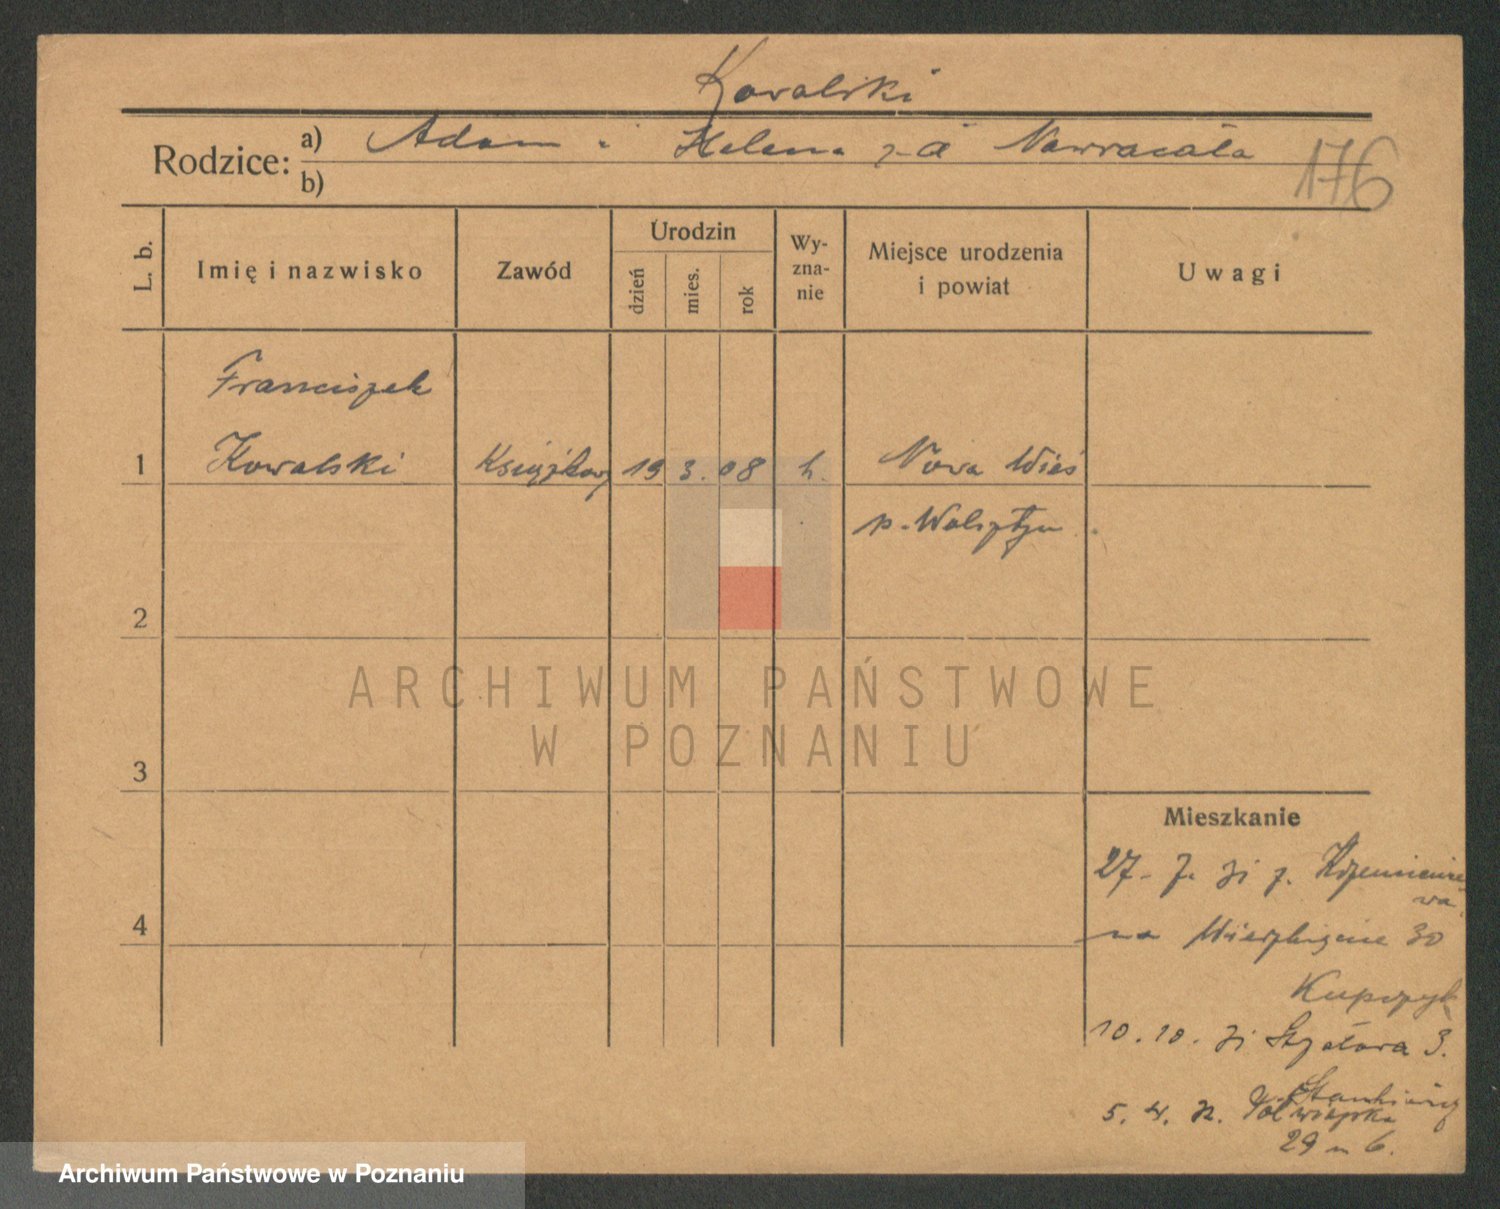 Kowalski
Rodzice: a) Adam i Helena z d Nawracała
b)
176
L. b.
Imię i nazwisko
Zawód
Urodzin
dzień
mies.
rok
Wy-
zna-
nie
Miejsce urodzenia
i powiat
Uwagi
Franciszek
1 Kowalski Książkowy 19 3. 08 k. Nowa Wieś
p. Wolsztyn
2
3
4
ARCHIWUM PAŃSTWOWE
W POZNANIU
Mieszkanie
27. 7. 31 z. Krzemieniewa
na Wierzbięcice 30
Kupczyk
10. 10. 31 Strzałowa 3.
5. 4. 32. Półwiejska
29 m 6.
Archiwum Państwowe w Poznaniu